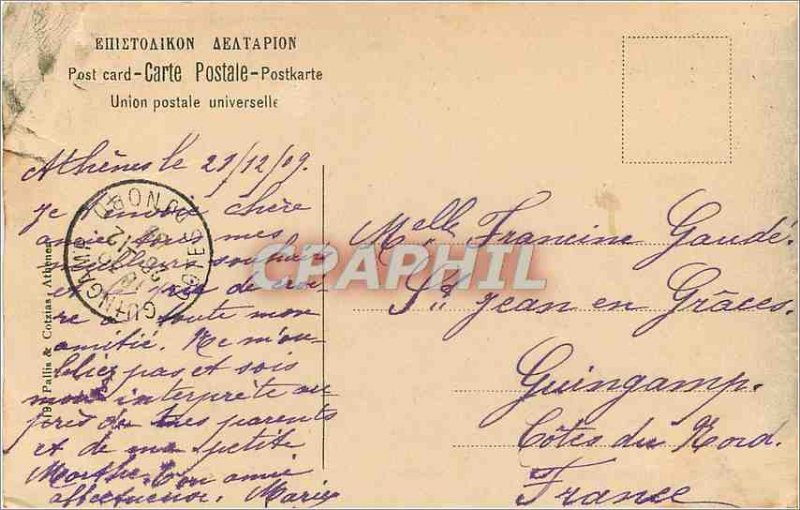 ΕΠΙΣΤΟΛΙΚΟΝ ΔΕΛΤΑΡΙΟΝ
Post card-Carte Postale-Postkarte
Union postale universelle
Athènes le 21/12/09.
Je envoie chère
amie mes
meilleurs souhaits
et prie de croi
re à toute mon
amitié. Ne m'ou
bliez pas et sois
mon interprète au
près de tes parents
et de ma petite
Marthe. Ton amie
affectueuse. Marie
Pallis & Cotzias, Athènes
GUINGAMP
COTES DU NORD
CPARPHIL
Melle Francine Gaudé.
St Jean en Grâces.
Guingamp.
Côtes du Nord.
France